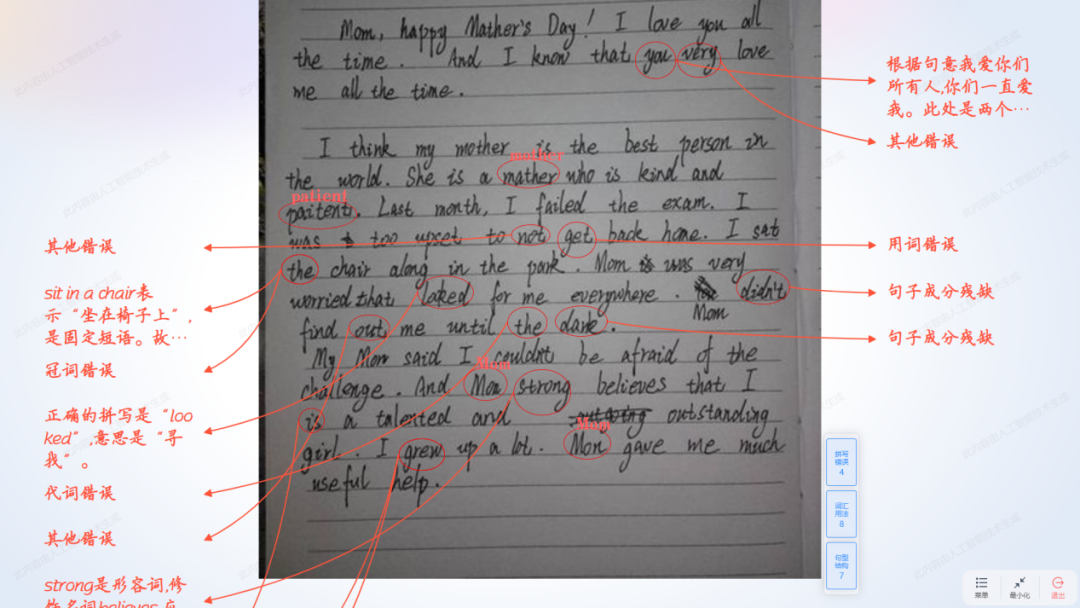 Mom, happy Mather's Day! I love you all
the time. And I know that you very love
me all the time.
I think my mother is the best person in
mother
the world. She is a mather who is kind and
patient
paitent. Last month, I failed the exam. I
was too upset to not get back home. I sat
the chair along in the park. Mom was very
worried that laked for me everywhere. didn't
Mom
find out me until the dark.
My Mom said I couldn't be afraid of the
Mom
challenge. And Mon strong believes that I
is a talented and outstanding
Mom
girl. I grew up a lot. Mon gave me much
useful help.
根据句意我爱你们
所有人,你们一直爱
我。此处是两个…
其他错误
用词错误
句子成分残缺
句子成分残缺
其他错误
sit in a chair表
示“坐在椅子上”,
是固定短语。故…
冠词错误
正确的拼写是“loo
ked”,意思是“寻
找”。
代词错误
其他错误
strong是形容词,修
饰名词believes,应
拼写
错误
4
词汇
用法
8
句型
结构
7
菜单
最小化
退出